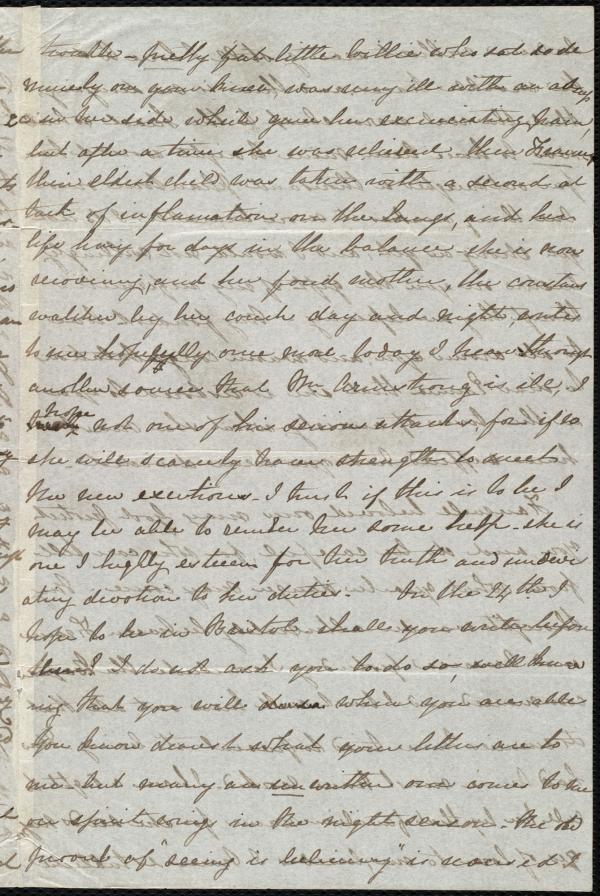 trouble - pretty fat little Willie who sat so de
murely on your knee was very ill with an absy
in her side which gave her excruciating pain,
but after a time she was relieved then
their eldest child was taken with a second at
tack of inflamation on the lungs, and her
life hung for days in the balance she is now
recovering, and her fond mother, the constant
watcher by her couch day and night, writes
to me hopefully once more today I hear through
another source that Mr Armstrong is ill, I
hope not one of his serious attacks for if so
she will scarcely have strength to meet
the new exertions - I trust if this is to be I
may be able to render her some help - she is
one I highly esteem for her truth and undevi
ating devotion to her duties. On the 24th I
hope to be in Bristol shall you write before
then? I do not ask you to do so, well know
ing that you will when you are able
You know dearest what your letters are to
me but many an unwritten one comes to me
on spirit wings in the night season. The old
proverb of "seeing is believing" is